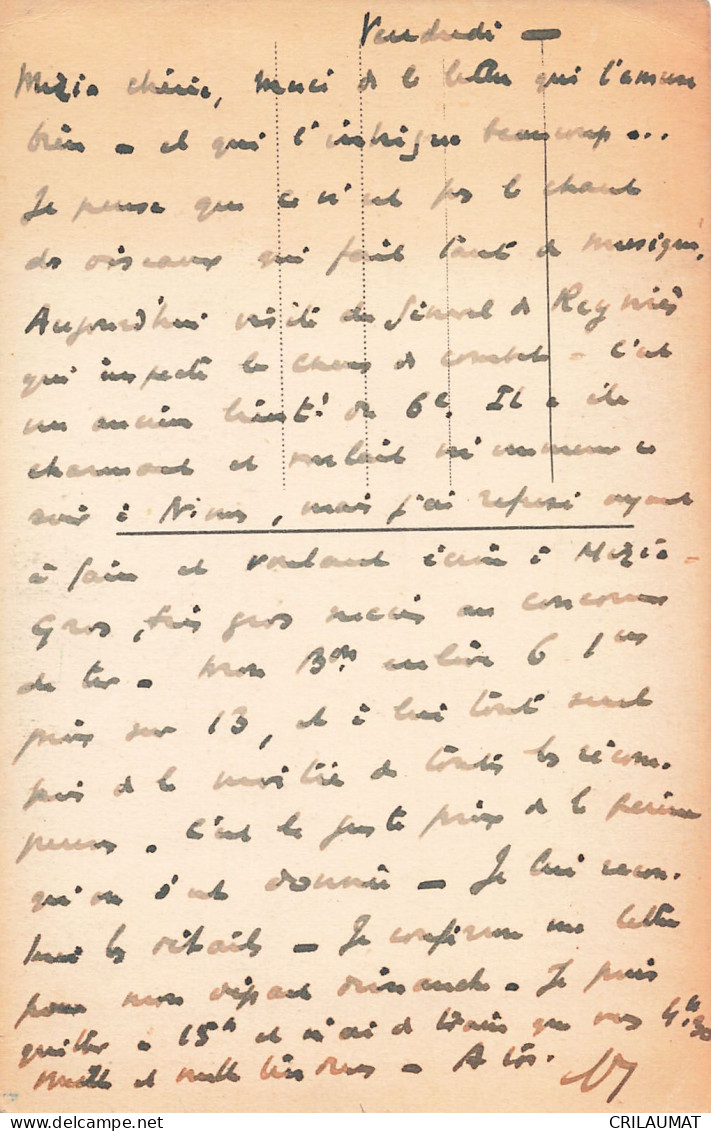 Vendredi —
Mezia chérie, merci de la lettre qui l'amuse
bien - et qui l'intrigue beaucoup...
Je pense que ce n'est pas le chant
des oiseaux qui fait tant de musique.
Aujourd'hui visite du Général de Reyniès
qui inspecte les chars de combat - C'est
un ancien lieut! du 6e. Il a été
charmant et voulait m'emmener ce
soir à Nimes, mais j'ai refusé ayant
à faire et voulant écrire à Mezia -
Gros, très gros succès au concours
de tir - Mon Bon enlève 6 1ers
prix sur 13, et à lui tout seul
près de la moitié de toutes les récom-
penses. C'est le juste prix de la peine
qu'on s'est donnée - Je lui racon-
terai les détails - Je confirme ma lettre
pour mon départ dimanche - Je puis
quitter à 15h et n'ai de train que vers 4h30
Mille et mille tendresses - A tôt.
CRILAUMAT